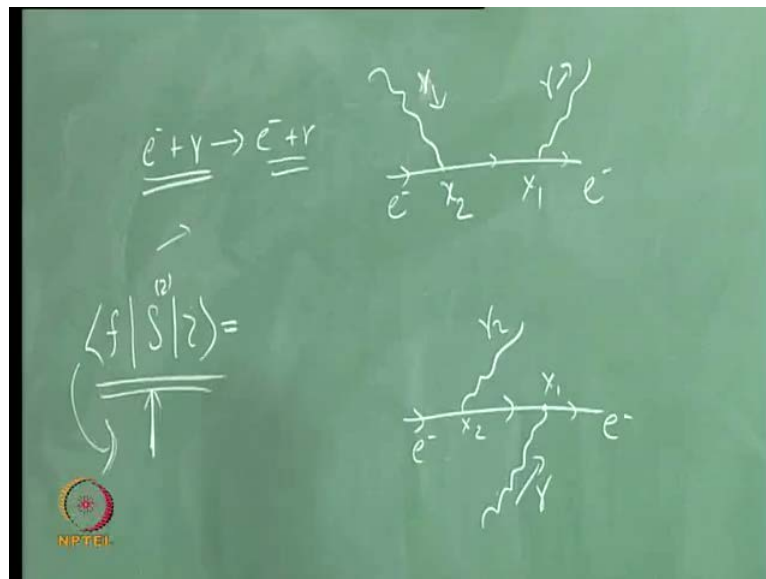 e⁻ + γ → e⁻ + γ
γ
γ
e⁻ x₂ x₁ e⁻
⟨f|S⁽²⁾|i⟩ =
γ₂
x₁
e⁻ x₂ e⁻
γ
NPTEL